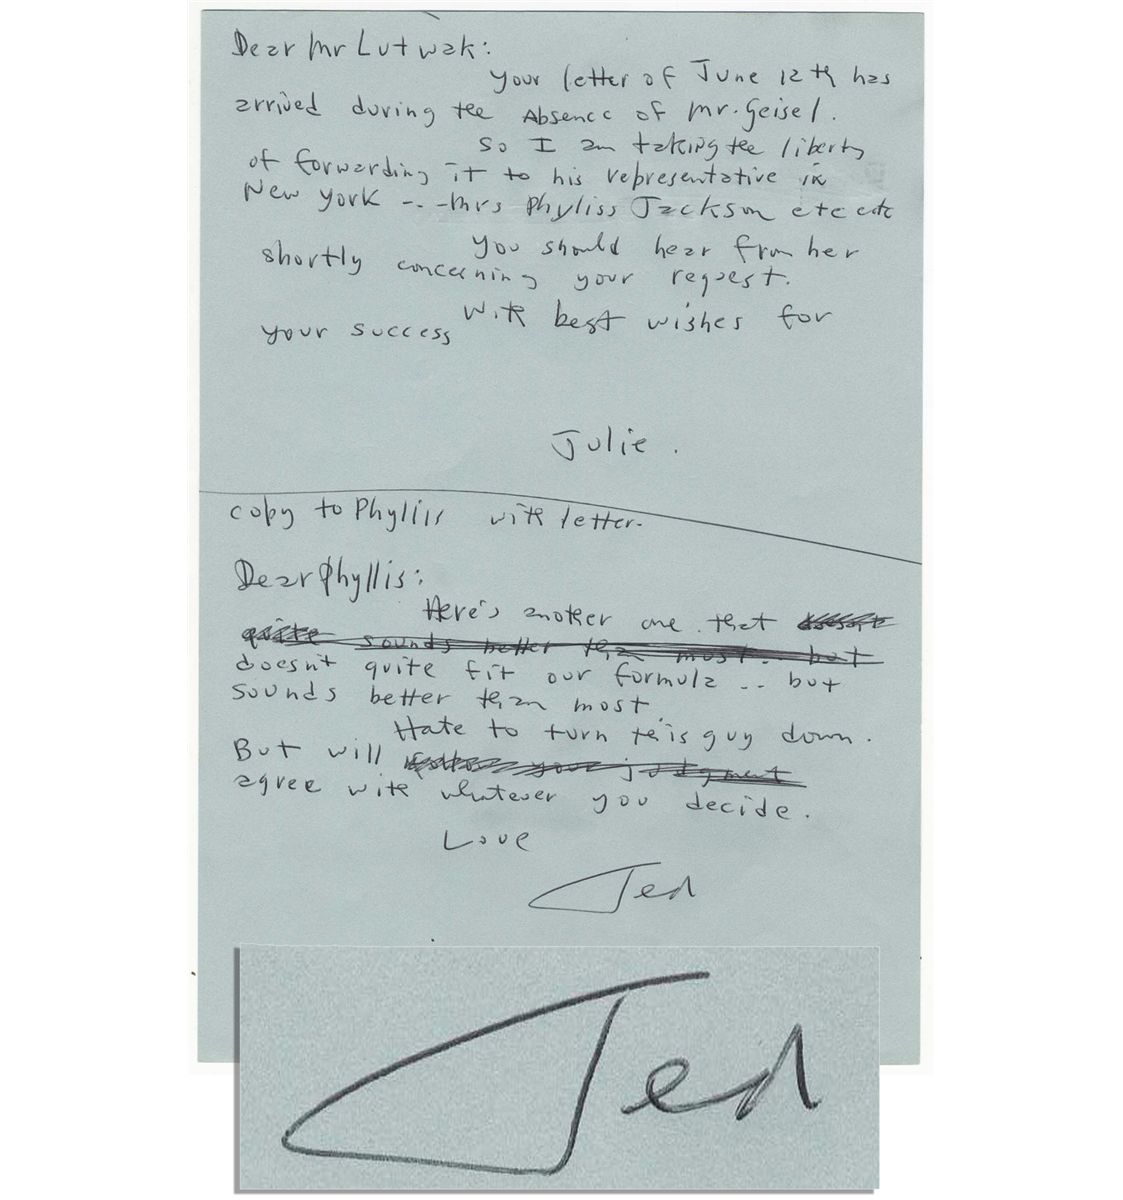 Dear Mr Lutwak:
Your letter of June 12th has
arrived during the Absence of Mr. Geisel.
So I am taking the liberty
of forwarding it to his representative in
New York - - - Mrs Phyliss Jackson etc etc
You should hear from her
shortly concerning your request.
With best wishes for
your success
Julie.
copy to Phyliss with letter.
Dear Phyllis:
Here's another one that doesn't
quite sounds better than most.. but
doesn't quite fit our formula .. but
sounds better than most.
Hate to turn this guy down.
But will your judgment
agree with whatever you decide.
Love
Ted
Ted